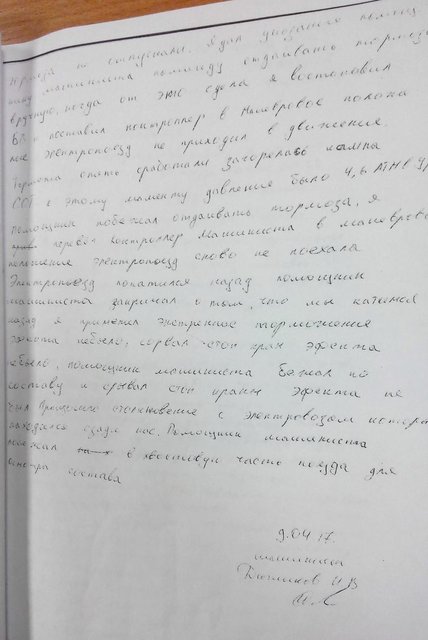 тормоза не отпускали. Я дал указание помощ
нику машиниста помощу отдавать тормоза
вручную, когда он это сделал я востоновил
БВ и поставил контроллер в Маневровое положе
ние электропоезд не приходил в движения.
Тормоза опять сработали загорелась лампа
СОТ к этому моменту давление было 4,6 АТМ в
Помощник побежал отдавать тормоза, я
перевел Контроллер Машиниста в маневровое
положение электропоезд снова не поехал
Электропоезд покатился назад помощник
машиниста закричал о том, что мы катимся
назад я применил экстренное торможения
эфекта небыло, сорвал стоп кран эфекта
небыло, помощник машиниста бежал по
составу и срывал стоп краны эфекта не
был Произошло столкновение с электровозом котор
находился сзади нас. Помощник машиниста
поежал в хвостовую часть поезда для
осмотра состава
9.04 17.
машинист
И В